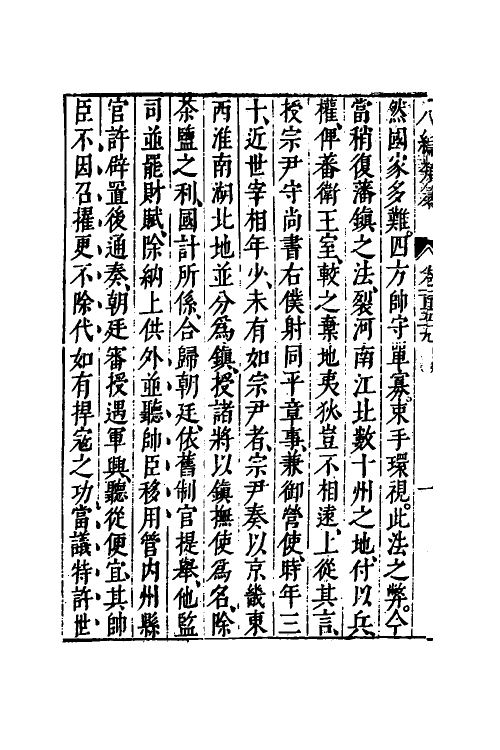 八編類纂 卷一百五十九 一
然國家多難。四方帥守單寡。束手環視。此法之弊。今
當稍復藩鎮之法、裂河南江北數十州之地、付以兵
權、俾蕃衛王室、較之棄地夷狄、豈不相遠、上從其言、
授宗尹守尚書右僕射同平章事、兼御營使、時年三
十、近世宰相年少、未有如宗尹者、宗尹奏以京畿東
西淮南湖北地並分爲鎮、授諸將以鎮撫使爲名、除
茶鹽之利、國計所係、合歸朝廷、依舊制官提舉、他監
司並罷財賦、除納上供外並聽帥臣移用管內州縣
官許辟置後通奏、朝廷審授遇軍興、聽從便宜、其帥
臣不因召擢更不除代如有捍寇之功、當議特許世